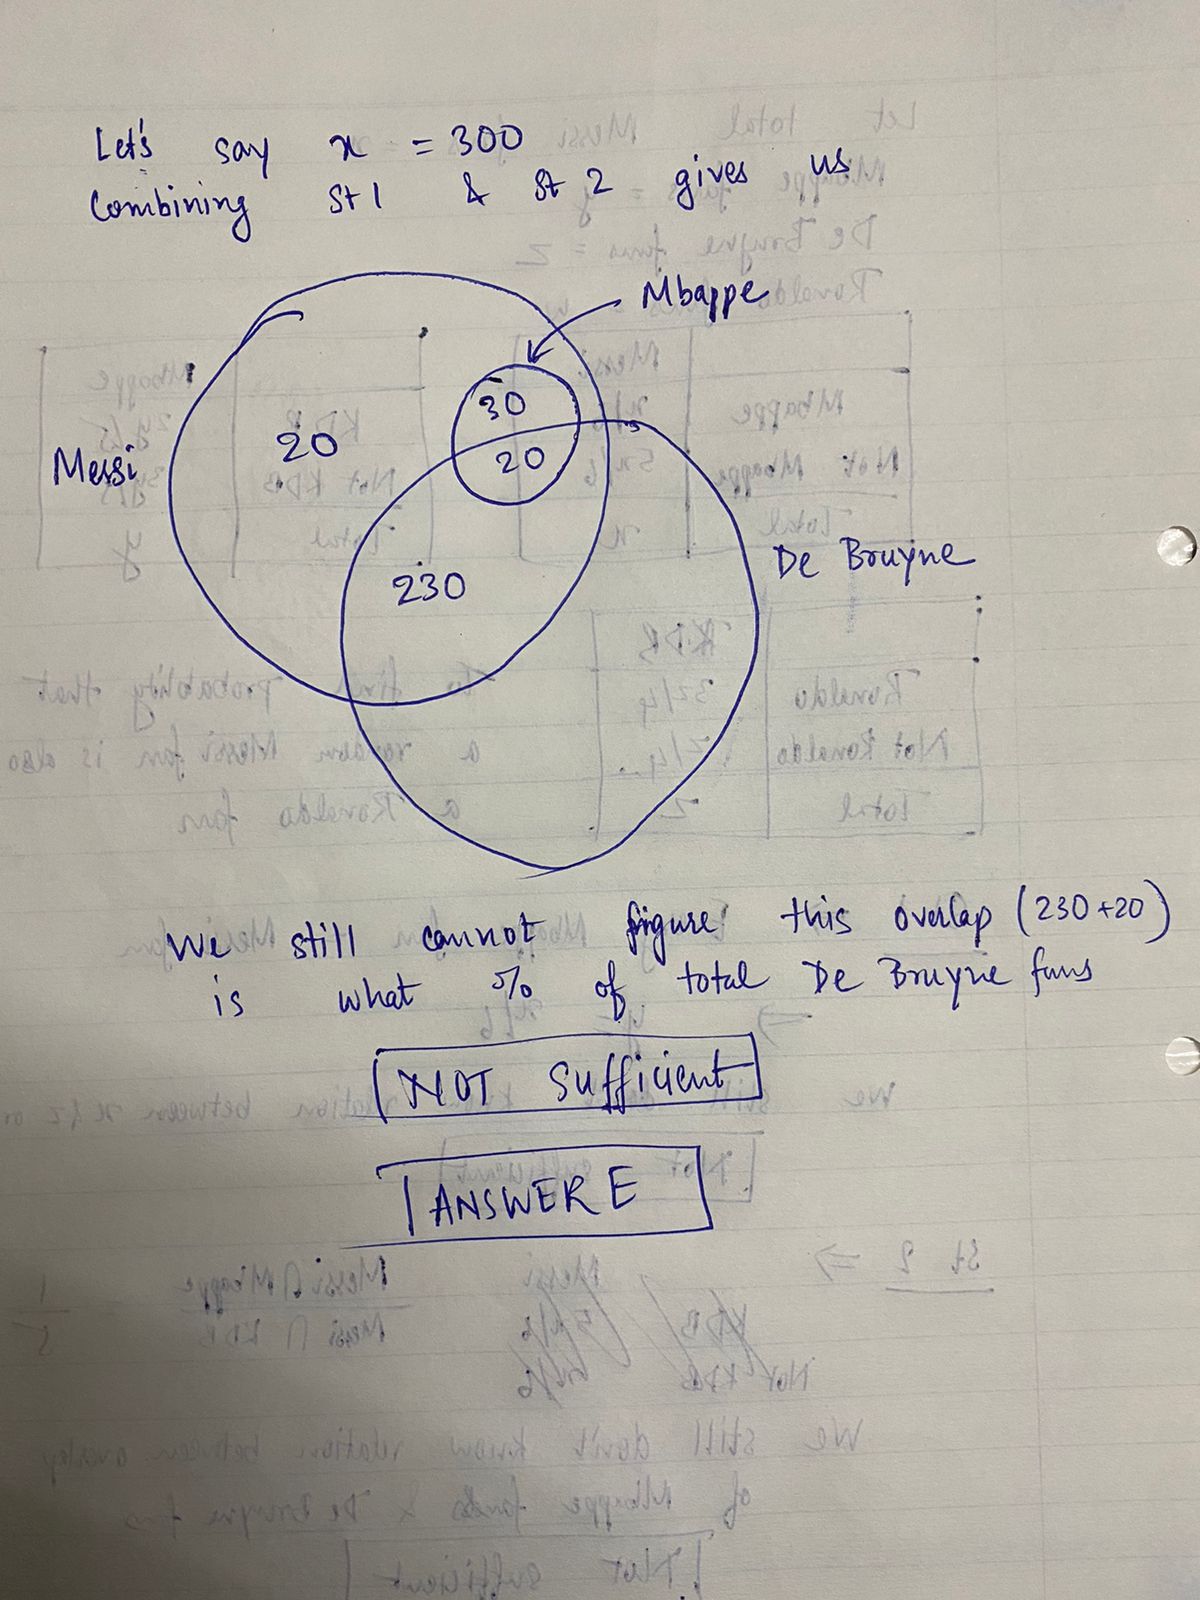 Let's say x = 300
Combining St 1 & St 2 gives us
Mbappe
30
20
20
Messi
230
De Bruyne
We still cannot figure this overlap (230+20)
is what % of total De Bruyne fans
NOT Sufficient
ANSWER E